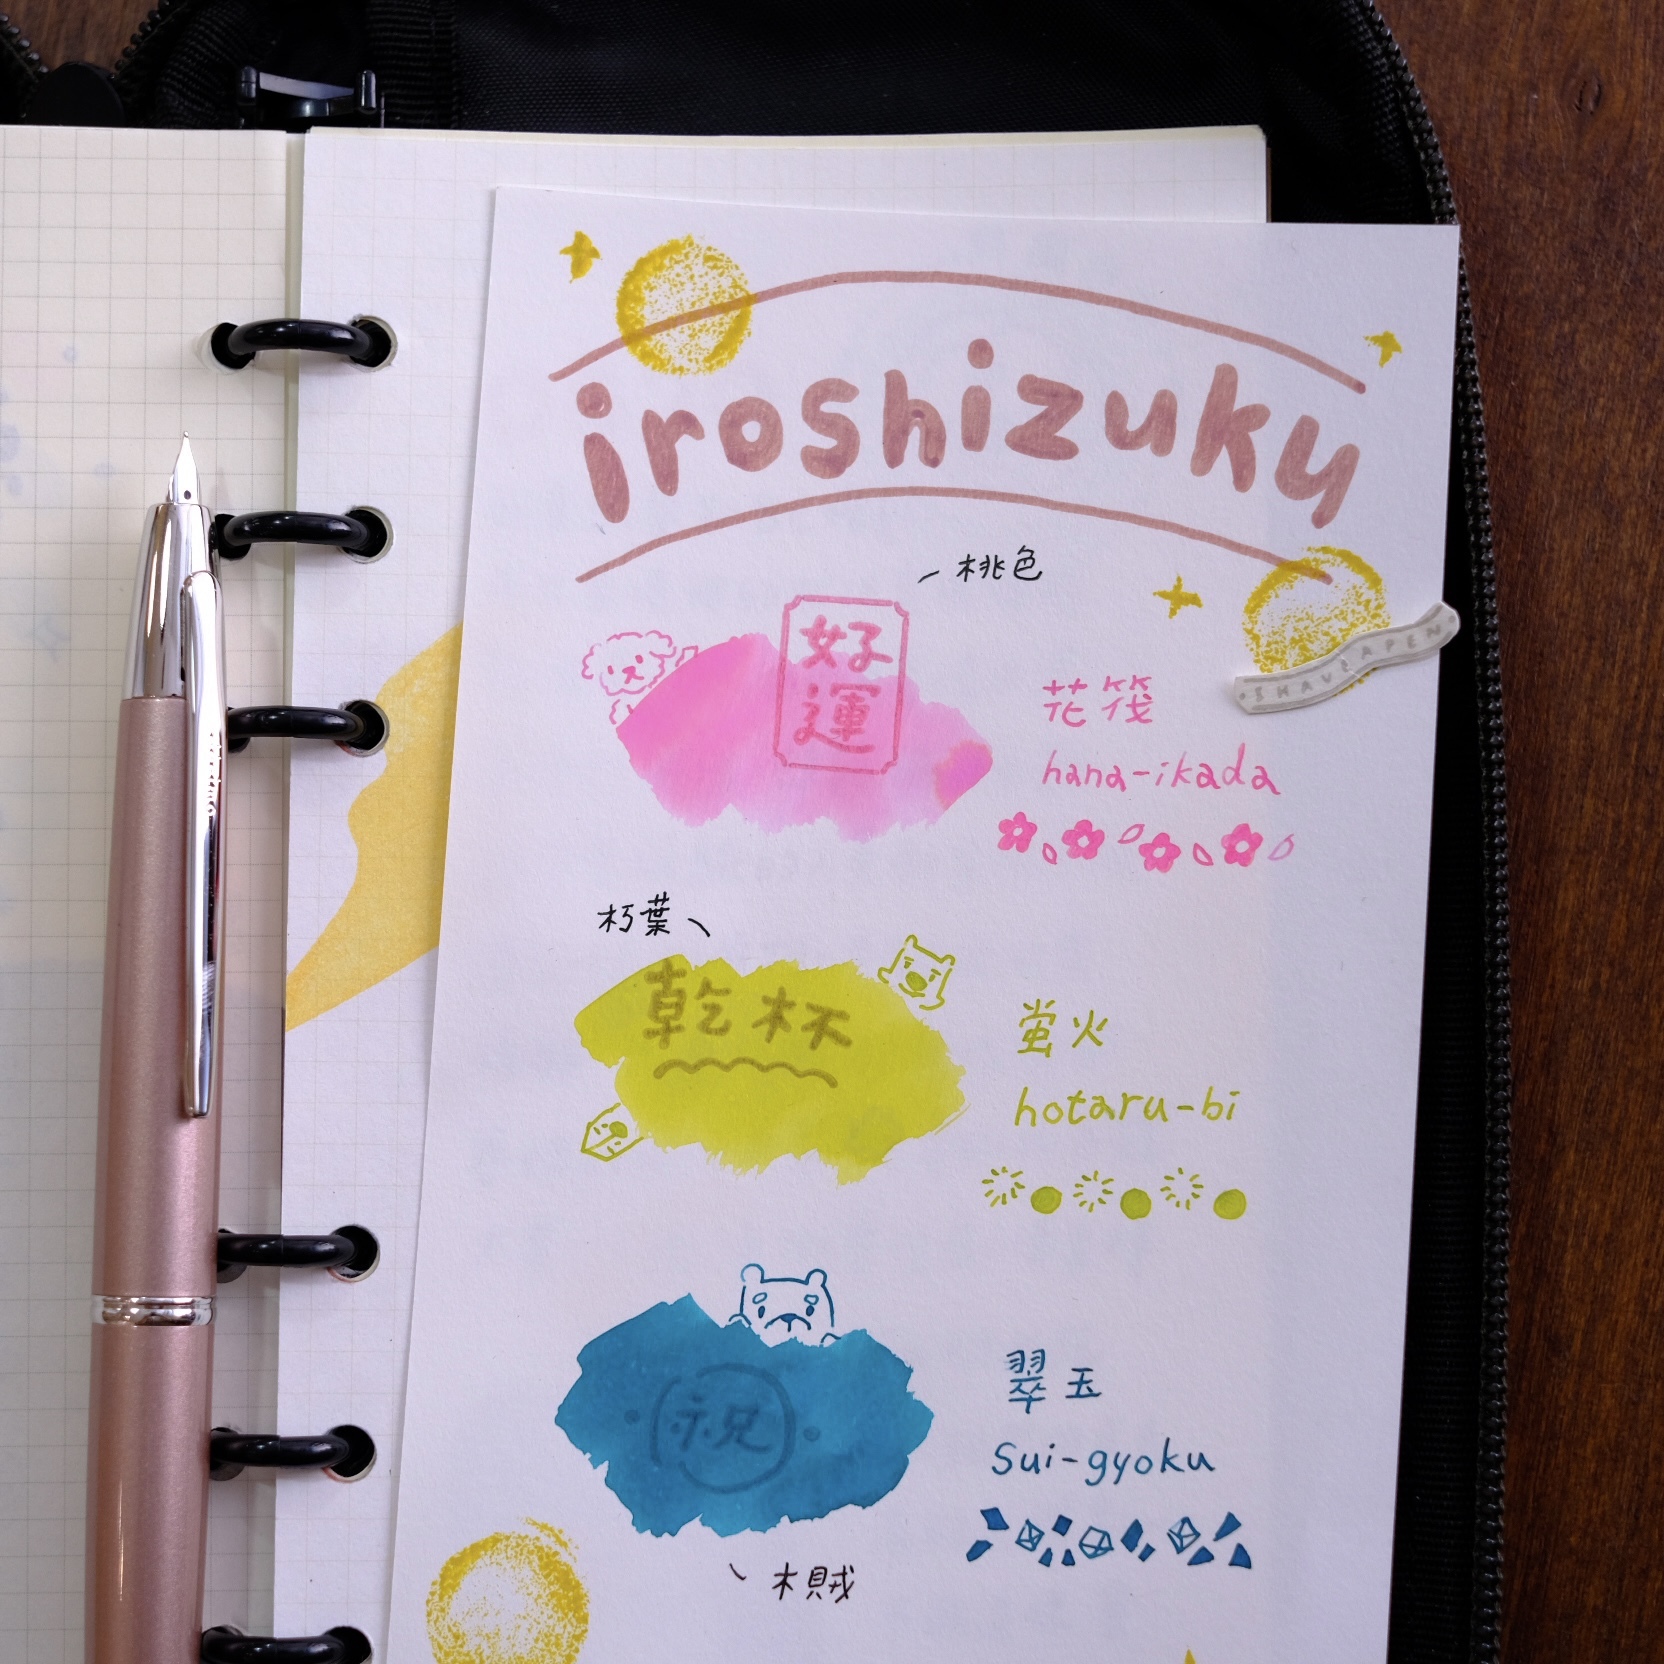 iroshizuku
桃色
好
運
花筏
hana-ikada
朽葉
乾杯
螢火
hotaru-bi
祝
翠玉
sui-gyoku
木賊